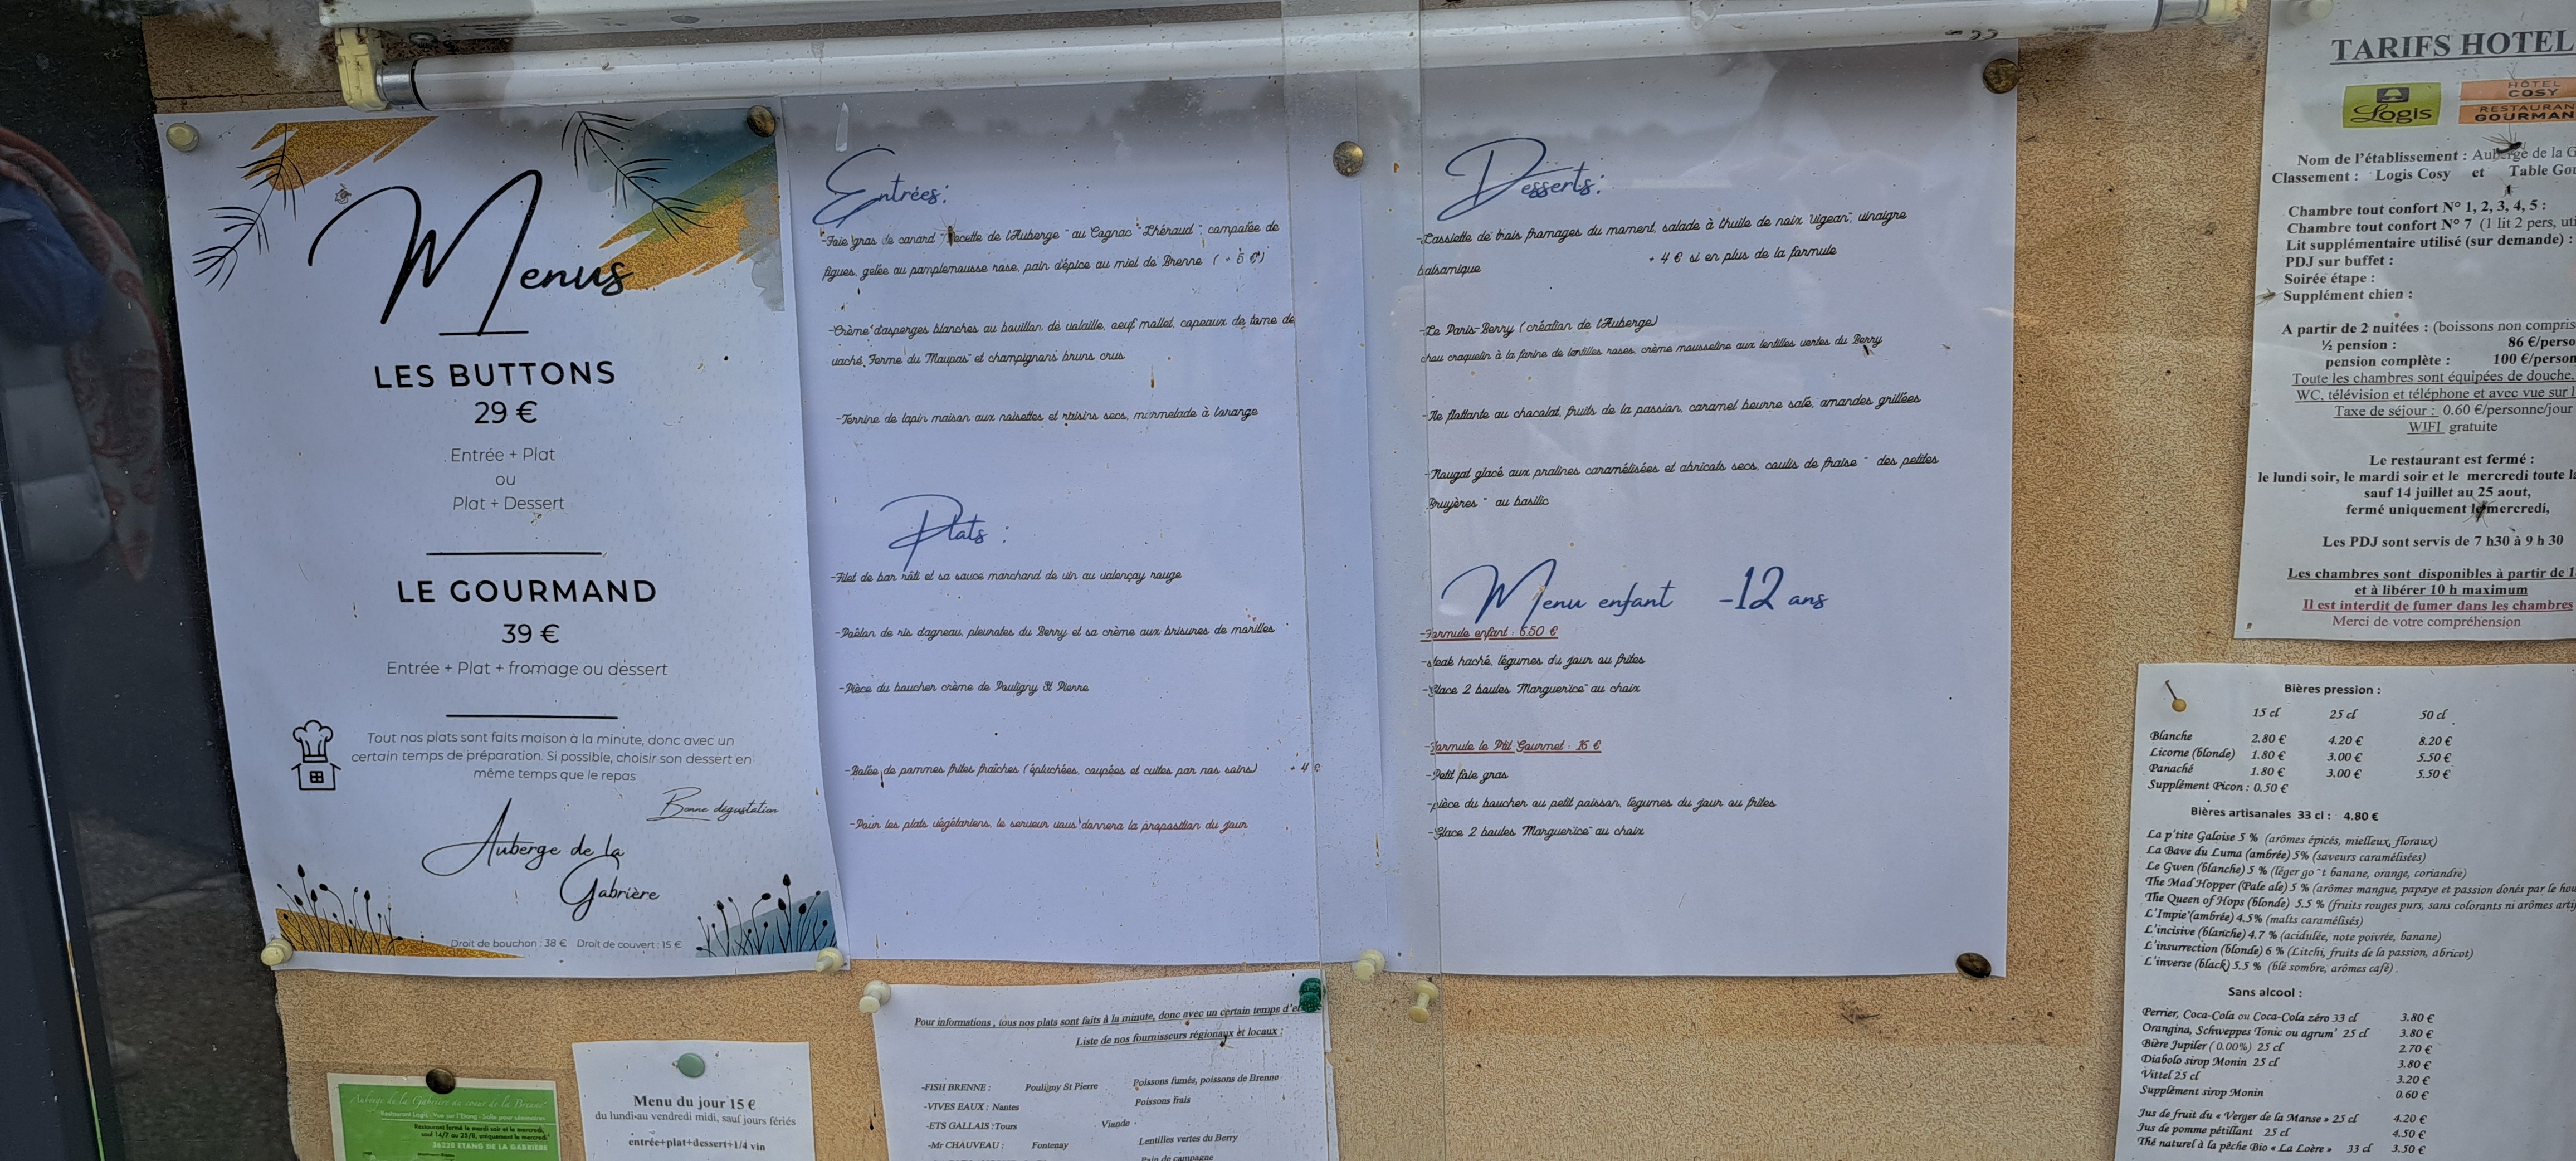 Menus
LES BUTTONS
29 €
Entrée + Plat
ou
Plat + Dessert
LE GOURMAND
39 €
Entrée + Plat + fromage ou dessert
Tout nos plats sont faits maison à la minute, donc avec un
certain temps de préparation. Si possible, choisir son dessert en
même temps que le repas
Bonne dégustation
Auberge de la
Gabrière
Droit de bouchon : 38 € Droit de couvert : 15 €
Entrées:
-Foie gras de canard " recette de l'Auberge " au Cognac " Lhéraud ", compotée de
figues, gelée au pamplemousse rose, pain d'épice au miel de Brenne ( + 5 €)
-Crème d'asperges blanches au bouillon de volaille, oeuf mollet, copeaux de tome de
vache "Ferme du Maupas" et champignons bruns crus
-Terrine de lapin maison aux noisettes et raisins secs, marmelade à l'orange
Plats :
-Filet de bar rôti et sa sauce marchand de vin au valençay rouge
-Poêlon de ris d'agneau, pleurotes du Berry et sa crème aux brisures de morilles
-Pièce du boucher crème de Pouligny St Pierre
-Bolée de pommes frites fraîches (épluchées, coupées et cuites par nos soins) + 4 €
-Pour les plats végétariens, le serveur vous donnera la proposition du jour
Desserts:
-L'assiette de trois fromages du moment, salade à l'huile de noix "Vigean", vinaigre
balsamique + 4 € si en plus de la formule
-Le Paris-Berry (création de l'Auberge)
chou craquelin à la farine de lentilles roses, crème mousseline aux lentilles vertes du Berry
-Ile flottante au chocolat, fruits de la passion, caramel beurre salé, amandes grillées
-Nougat glacé aux pralines caramélisées et abricots secs, coulis de fraise " des petites
Bruyères " au basilic
Menu enfant -12 ans
-Formule enfant : 6.50 €
-steak haché, légumes du jour ou frites
-Glace 2 boules "Marguerice" au choix
-Formule le Ptit Gourmet : 15 €
-Petit foie gras
-pièce du boucher ou petit poisson, légumes du jour ou frites
-Glace 2 boules "Marguerice" au choix
TARIFS HOTEL
Logis
HÔTEL
COSY
RESTAURAN
GOURMAN
Nom de l'établissement : Auberge de la G
Classement : Logis Cosy et Table Gou
Chambre tout confort N° 1, 2, 3, 4, 5 :
Chambre tout confort N° 7 (1 lit 2 pers, uti
Lit supplémentaire utilisé (sur demande) :
PDJ sur buffet :
Soirée étape :
Supplément chien :
A partir de 2 nuitées : (boissons non compris
½ pension : 86 €/perso
pension complète : 100 €/person
Toute les chambres sont équipées de douche,
WC, télévision et téléphone et avec vue sur l
Taxe de séjour : 0.60 €/personne/jour
WIFI gratuite
Le restaurant est fermé :
le lundi soir, le mardi soir et le mercredi toute la
sauf 14 juillet au 25 aout,
fermé uniquement le mercredi,
Les PDJ sont servis de 7 h30 à 9 h 30
Les chambres sont disponibles à partir de 1
et à libérer 10 h maximum
Il est interdit de fumer dans les chambres
Merci de votre compréhension
Bières pression :
15 cl 25 cl 50 cl
Blanche 2.80 € 4.20 € 8.20 €
Licorne (blonde) 1.80 € 3.00 € 5.50 €
Panaché 1.80 € 3.00 € 5.50 €
Supplément Picon : 0.50 €
Bières artisanales 33 cl : 4.80 €
La p'tite Galoise 5 % (arômes épicés, mielleux, floraux)
La Bave du Luma (ambrée) 5% (saveurs caramélisées)
Le Gwen (blanche) 5 % (léger go¨t banane, orange, coriandre)
The Mad Hopper (Pale ale) 5 % (arômes mangue, papaye et passion donés par le hou
The Queen of Hops (blonde) 5.5 % (fruits rouges purs, sans colorants ni arômes arti
L'Impie (ambrée) 4.5% (malts caramélisés)
L'incisive (blanche) 4.7 % (acidulée, note poivrée, banane)
L'insurrection (blonde) 6 % (Litchi, fruits de la passion, abricot)
L'inverse (black) 5.5 % (blé sombre, arômes café) .
Sans alcool :
Perrier, Coca-Cola ou Coca-Cola zéro 33 cl 3.80 €
Orangina, Schweppes Tonic ou agrum' 25 cl 3.80 €
Bière Jupiler (0.00%) 25 cl 2.70 €
Diabolo sirop Monin 25 cl 3.80 €
Vittel 25 cl 3.20 €
Supplément sirop Monin 0.60 €
Jus de fruit du « Verger de la Manse » 25 cl 4.20 €
Jus de pomme pétillant 25 cl 4.50 €
Thé naturel à la pêche Bio « La Loère » 33 cl 3.50 €
Auberge de la Gabrière au coeur de la Brenne
Restaurant Logis - Vue sur l'Etang - Salle pour séminaires
Restaurant fermé le mardi soir et le mercredi,
sauf 14/7 au 25/8, uniquement le mercredi
36220 ETANG DE LA GABRIERE
Menu du jour 15 €
du lundi au vendredi midi, sauf jours fériés
entrée+plat+dessert+1/4 vin
Pour informations , tous nos plats sont faits à la minute, donc avec un certain temps d'
Liste de nos fournisseurs régionaux et locaux :
-FISH BRENNE : Pouligny St Pierre Poissons fumés, poissons de Brenne
-VIVES EAUX : Nantes Poissons frais
-ETS GALLAIS :Tours Viande
-Mr CHAUVEAU : Fontenay Lentilles vertes du Berry
Pain de campagne